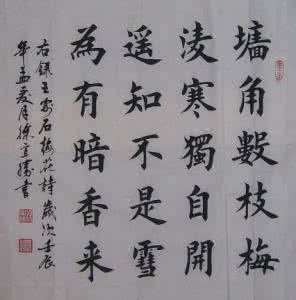 墻角數枝梅
凌寒獨自開
遥知不是雪
為有暗香来
右錄王安石梅花詩歲次壬辰
年孟夏月徐宣勝書